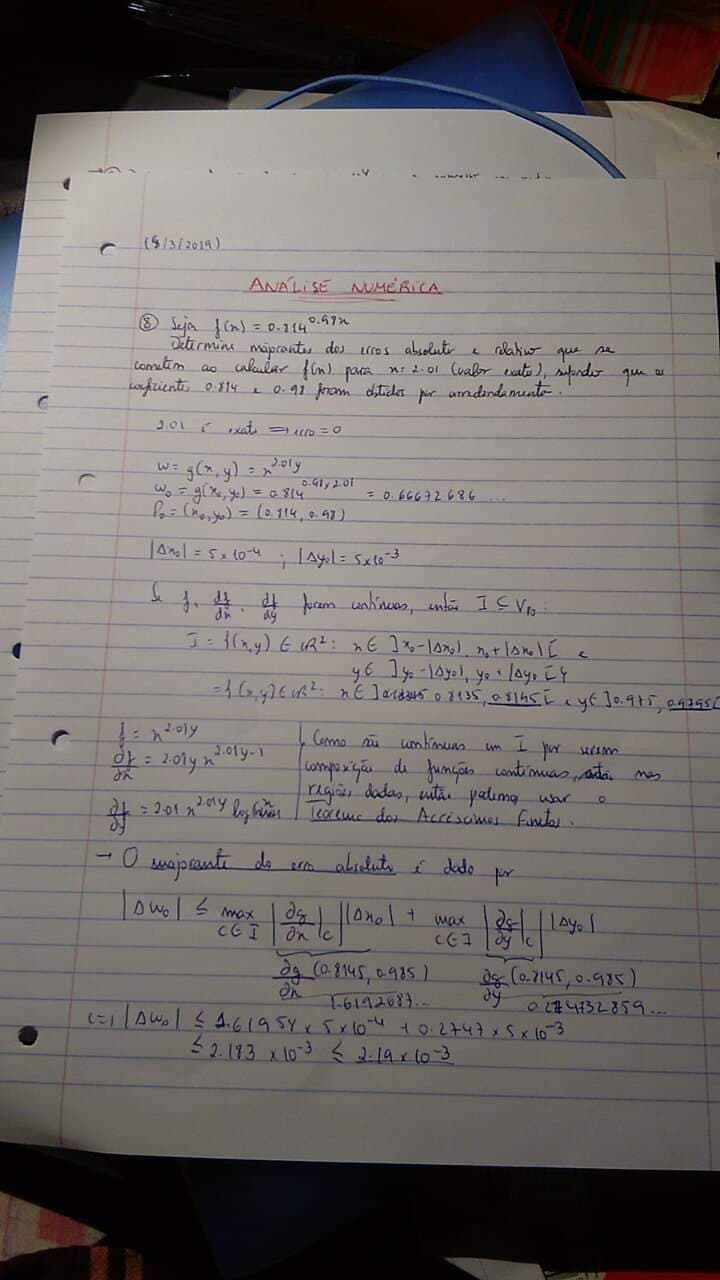 (8/3/2019)
ANÁLISE NUMÉRICA
⑧ Seja f(x) = 0.814^0.98x
Determine majorantes dos erros absoluto e relativo que se
cometem ao calcular f(x) para x = 2.01 (valor exato), supondo que os
coeficientes 0.814 e 0.98 foram obtidos por arredondamento.
2.01 é exato ⟹ erro = 0
w = g(x, y) = x^2.01y
w₀ = g(x₀, y₀) = 0.814^0.98×2.01 = 0.66672686...
P₀ = (x₀, y₀) = (0.814, 0.98)
|Δx₀| = 5 × 10^-4 ; |Δy₀| = 5 × 10^-3
Se f, df/dx, df/dy forem contínuas, então I ⊆ V_P₀:
I = {(x, y) ∈ ℝ²: x ∈ ]x₀ - |Δx₀|, x₀ + |Δx₀|[ e
y ∈ ]y₀ - |Δy₀|, y₀ + |Δy₀[}
= {(x, y) ∈ ℝ²: x ∈ ]0.8135, 0.8145[ e y ∈ ]0.975, 0.9795[
f = x^2.01y
∂f/∂x = 2.01y x^2.01y-1
∂f/∂y = 2.01 x^2.01y log x
Como são contínuas em I por serem
composição de funções contínuas, nas
regiões dadas, então podemos usar o
Teorema dos Acréscimos Finitos.
→ O majorante do erro absoluto é dado por
|Δw₀| ≤ max c∈I |∂g/∂x|c| |Δx₀| + max c∈I |∂g/∂y|c| |Δy₀|
∂g/∂x (0.8145, 0.985) ∂g/∂y (0.8145, 0.985)
1.6192687... 0.274732859...
(=) |Δw₀| ≤ 1.61954 × 5 × 10^-4 + 0.2747 × 5 × 10^-3
≤ 2.183 × 10^-3 ≤ 2.19 × 10^-3